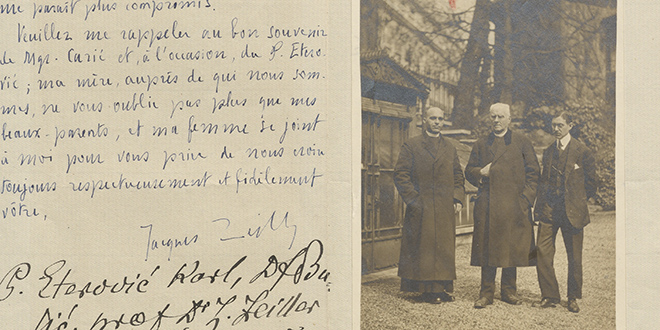 me paraît plus compromis.
Veuillez me rappeler au bon souvenir
de Mgr. Carić et, à l'occasion, du P. Etero-
vić ; ma mère, auprès de qui nous som-
mes, ne vous oublie pas plus que mes
beaux-parents, et ma femme se joint
à moi pour vous prier de nous croire
toujours respectueusement et fidèlement
vôtre,
Jacques Zeiller
P. Eterović Karl, D. f. Bu-
lić, prof. Dr J. Zeiller